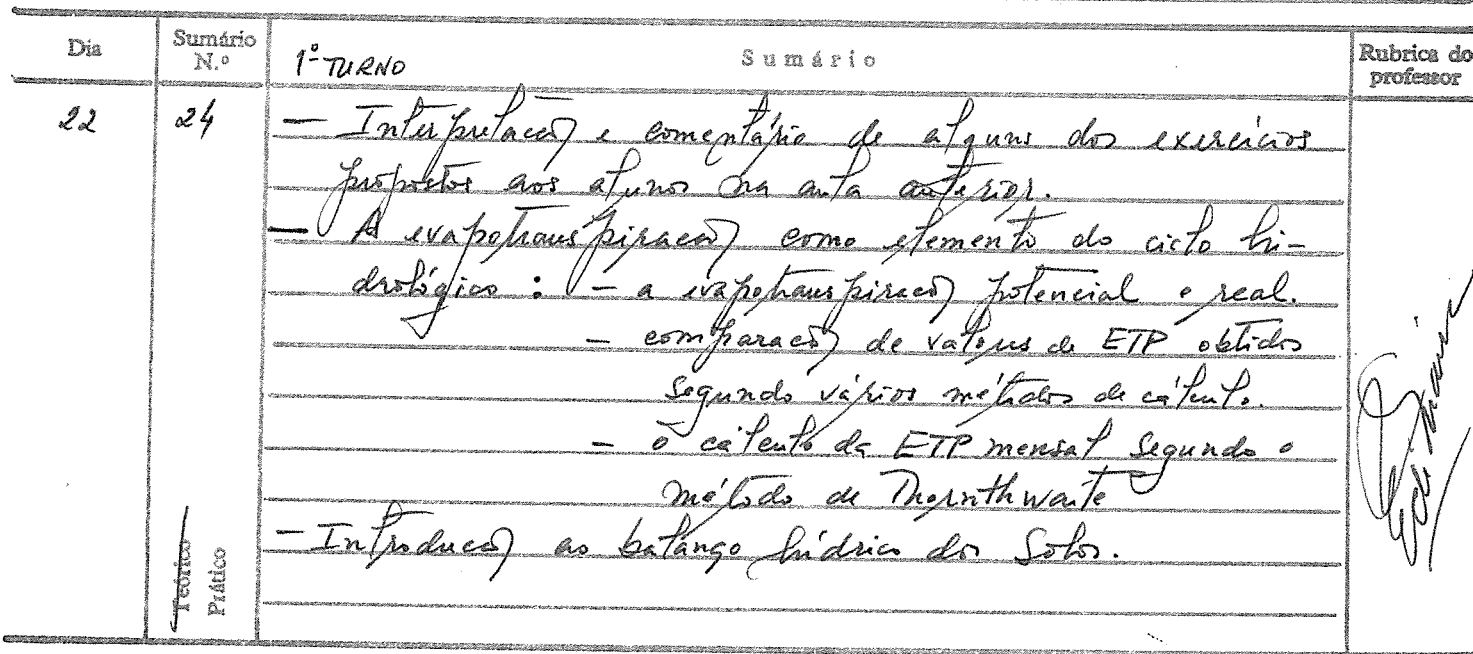 Dia Sumário N.º 1º TURNO Sumário Rubrica do professor
22 24 — Interpretação e comentário de alguns dos exercícios
propostos aos alunos na aula anterior.
— A evapotranspiração como elemento do ciclo hi-
drológico : — a evapotranspiração potencial e real.
— comparação de valores de ETP obtidos
segundo vários métodos de cálculo.
— o cálculo da ETP mensal segundo o
método de Thornthwaite
— Introdução ao balanço hídrico dos solos.
Teórico
Prático